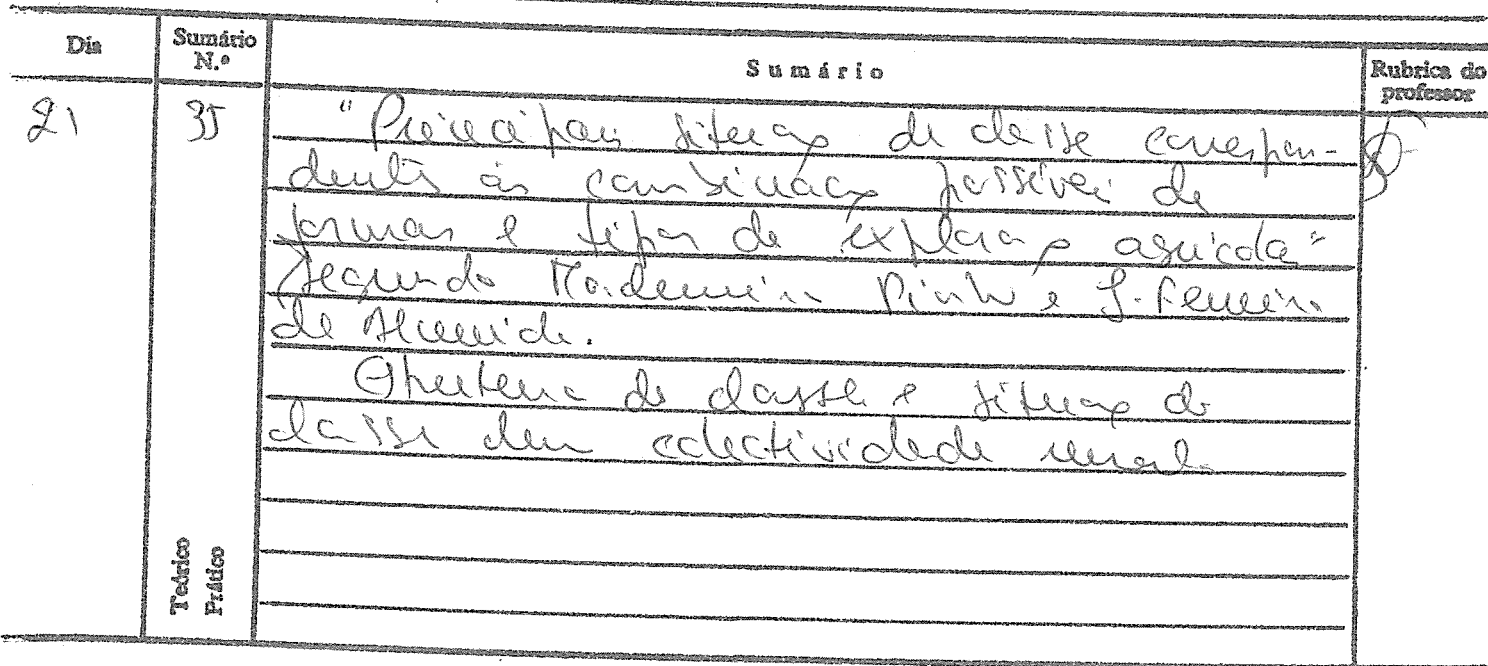 Dia
Sumário N.º
Sumário
Rubrica do professor
21
35
"Principais situação de classe correspon-
dentes às combinação possíveis de
formas e tipos de exploração agrícola"
segundo Madureira Pinho e J. Ferreira
de Almeida.
de classe e situação de
classe duma colectividade rural.
Teórico
Prático